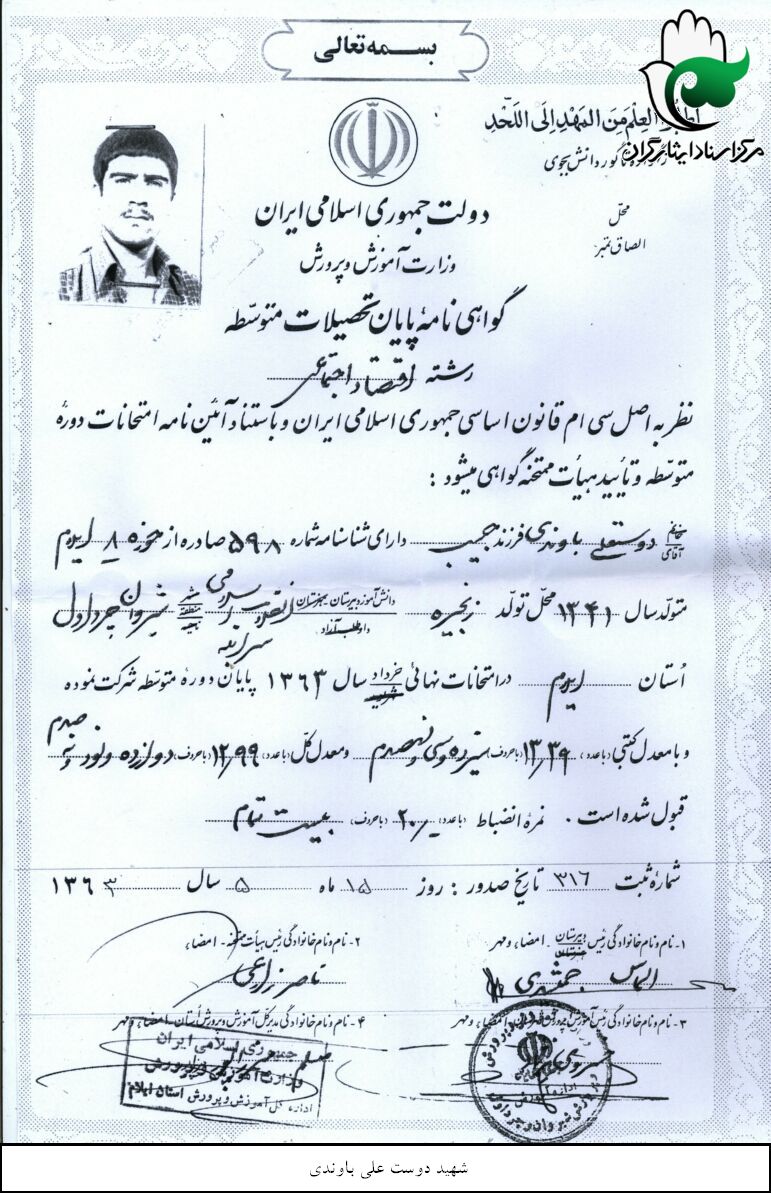 بسمه تعالی
اطلبوا العلم من المهد الی اللحد
مرکز اسناد ایثارگران
گور دانش بجوی
دولت جمهوری اسلامی ایران
محل
الصاق تمبر
وزارت آموزش و پرورش
گواهی نامهٔ پایان تحصیلات متوسطه
رشته اقتصاد اجتماعی
نظر به اصل سی ام قانون اساسی جمهوری اسلامی ایران و باستناد آئین نامه امتحانات دورهٔ
متوسطه و تأیید هیأت ممتحنه گواهی میشود :
خانم آقای دوستعلی باوندی فرزند حبیب دارای شناسنامه شماره ۵۹۸ صادره از حوزه ۸ ایلام
متولد سال ۱۳۴۱ محل تولد زنجیره دانش آموز دبیرستان هنرستان داوطلب آزاد انقلاب اسلامی سرابله شهر منطقه شیروان چرداول
استان ایلام در امتحانات نهائی خرداد سال ۱۳۶۳ پایان دورهٔ متوسطه شرکت نموده
و با معدل کتبی (با عدد) ۱۳/۳۹ (با حروف) سیزده و سی و نه صدم و معدل کل (با عدد) ۱۲/۹۹ (با حروف) دوازده و نود و نه صدم
قبول شده است . نمره انضباط (با عدد) ۲۰/- (با حروف) بیست تمام
شمارهٔ ثبت ۳۱۶ تاریخ صدور : روز ۱۵ ماه ۵ سال ۱۳۶۳
۱- نام و نام خانوادگی رئیس دبیرستان هنرستان - امضاء و مهر
۲- نام و نام خانوادگی رئیس هیأت ممتحنه - امضاء
الماس جمشیدی
ناصر زارعی
۳- نام و نام خانوادگی رئیس آموزش و پرورش امضاء و مهر
۴- نام و نام خانوادگی مدیر کل آموزش و پرورش استان - امضاء و مهر
جمهوری اسلامی ایران
وزارت آموزش و پرورش
اداره کل آموزش و پرورش استان ایلام
شهید دوست علی باوندی